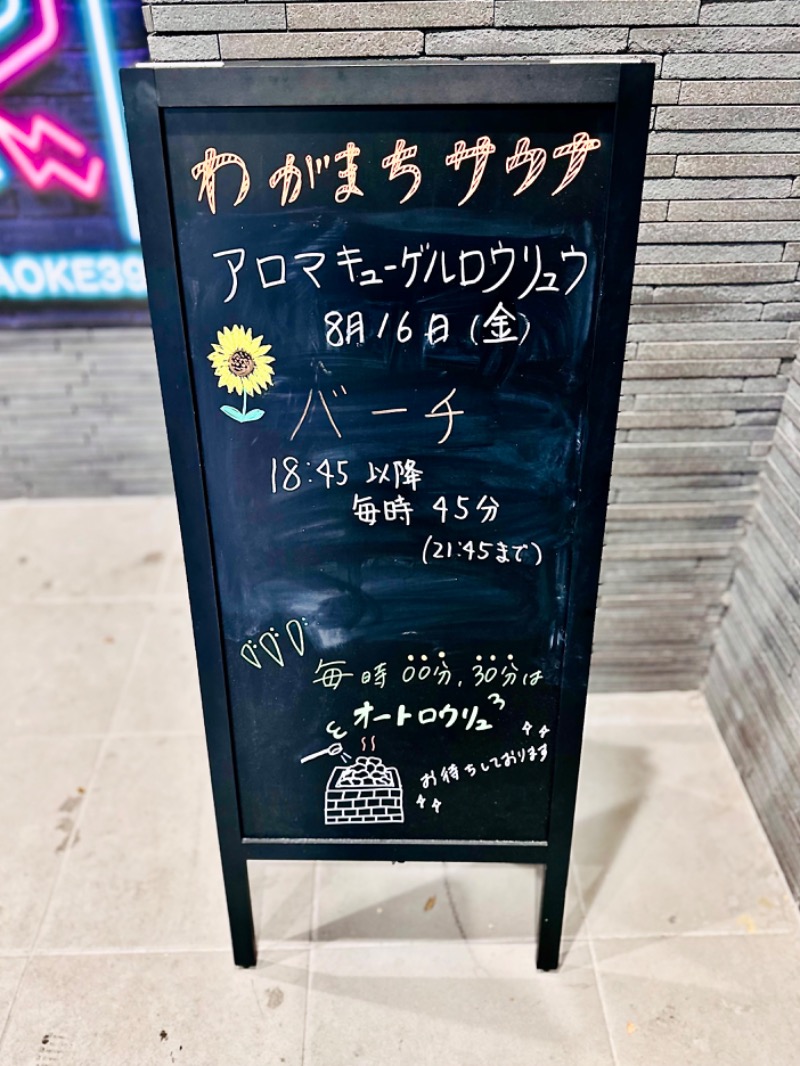 わがまちサウナ
アロマキューゲルロウリュウ
8月16日(金)
バーチ
18:45 以降
毎時 45分
(21:45まで)
毎時 00分, 30分は
オートロウリュ
お待ちしております
AOKE39